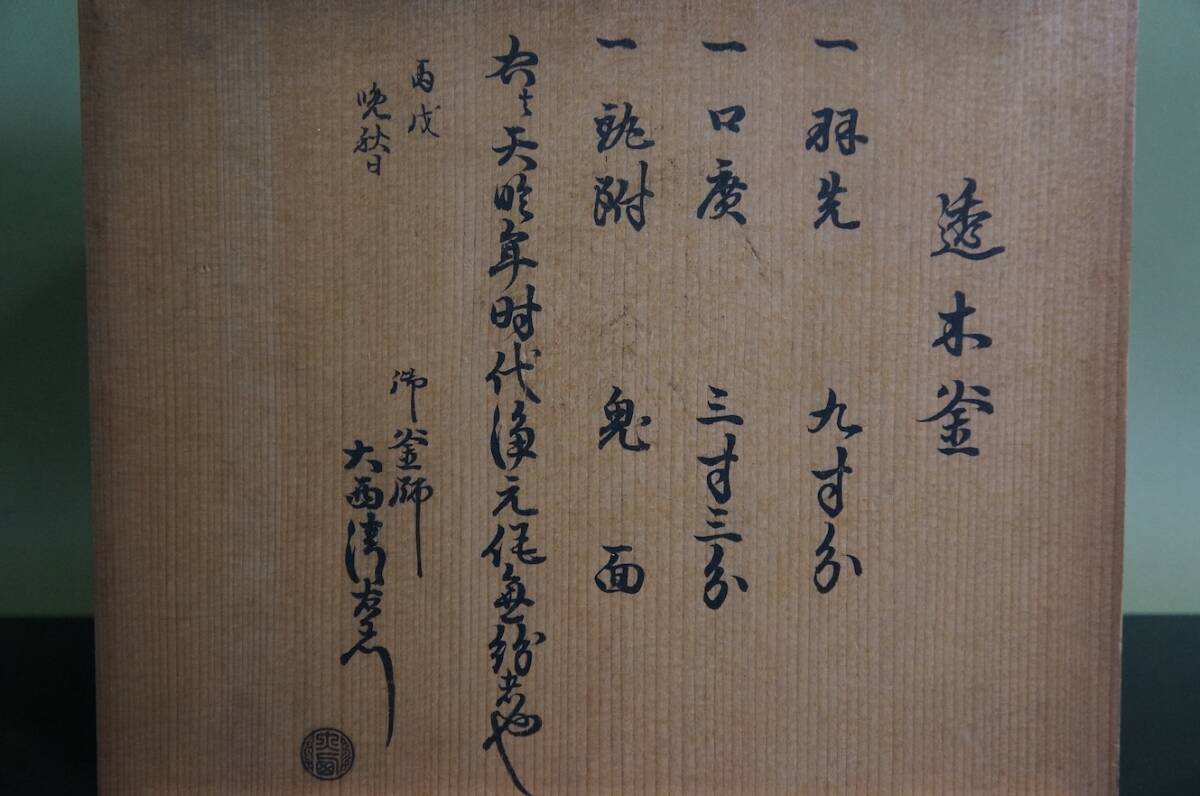 透木釜
一 羽先 九寸分
一 口廣 三寸三分
一 附 鬼面
右者天明年時代浄元作無紛者也
丙戌
晩秋日
御釜師
大西清右衛門